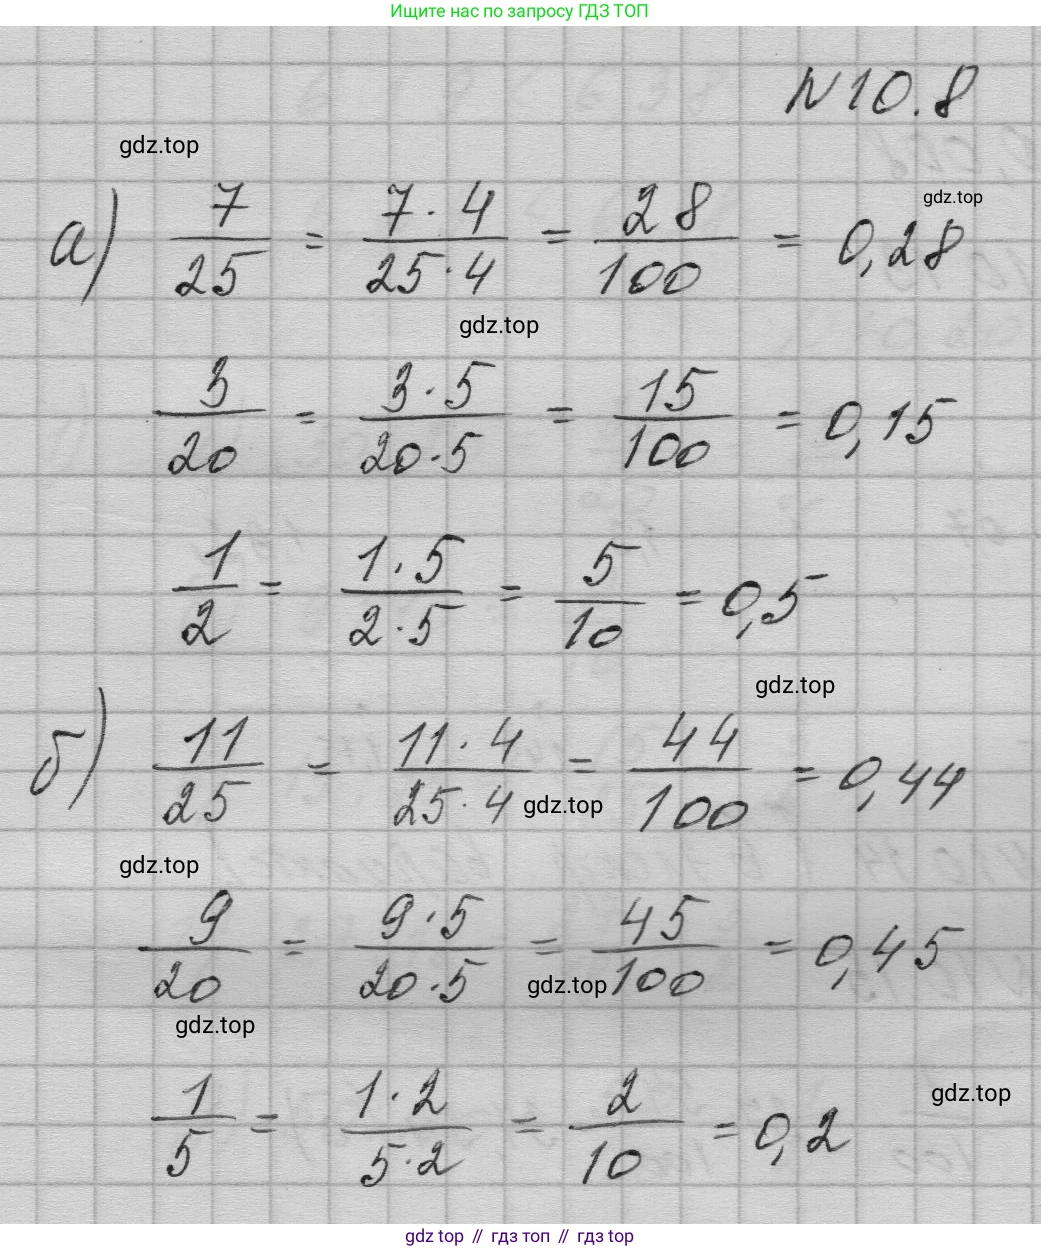 Ищите нас по запросу ГДЗ ТОП
N 10.8
gdz.top
gdz.top
а) 7/25 = 7·4/25·4 = 28/100 = 0,28
gdz.top
3/20 = 3·5/20·5 = 15/100 = 0,15
1/2 = 1·5/2·5 = 5/10 = 0,5
gdz.top
б) 11/25 = 11·4/25·4 = 44/100 = 0,44
gdz.top
gdz.top
9/20 = 9·5/20·5 = 45/100 = 0,45
gdz.top
gdz.top
1/5 = 1·2/5·2 = 2/10 = 0,2
gdz.top
gdz top // гдз топ // гдз top